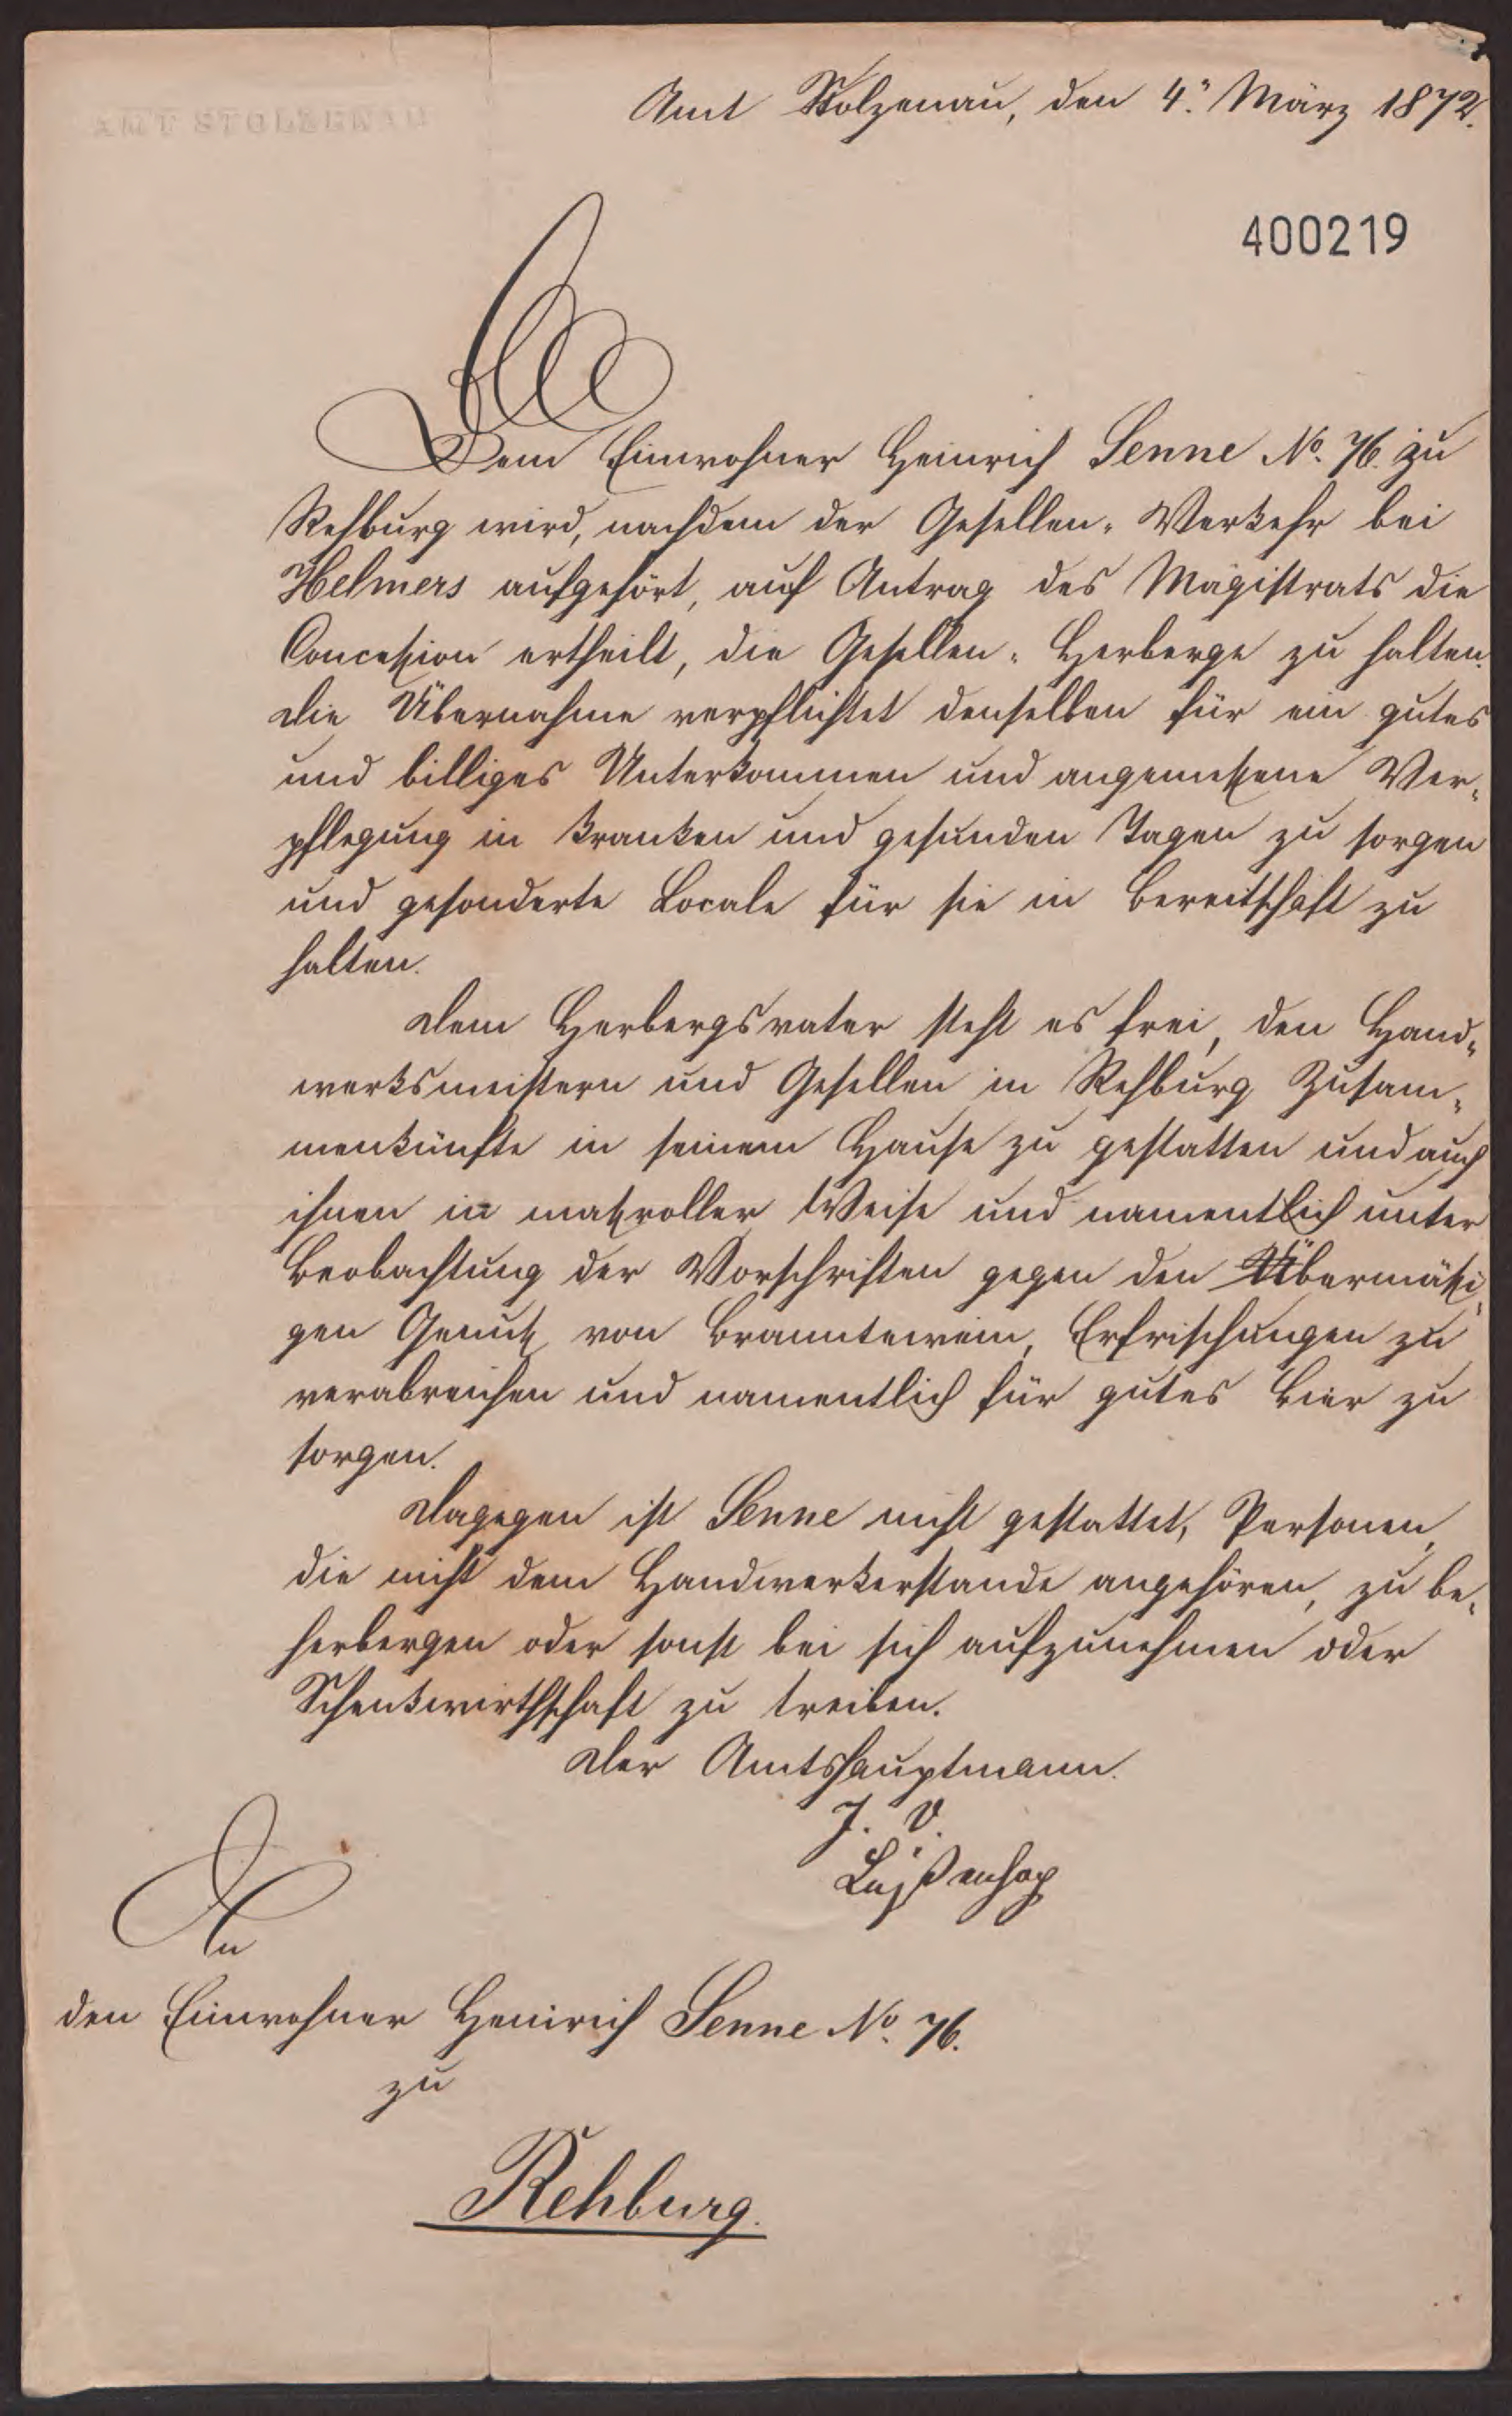 AMT STOLZENAU
Amt Stolzenau, den 4. März 1872.
400219
Dem Einwohner Heinrich Senne No. 76. zu
Rehburg wird, nachdem der Gesellen-Verkehr bei
Helmers aufgehört, auf Antrag des Magistrats die
Concession ertheilt, die Gesellen-Herberge zu halten.
Die Übernahme verpflichtet denselben für ein gutes
und billiges Unterkommen und angemeßene Ver-
pflegung in kranken und gesunden Tagen zu sorgen
und gesonderte Locale für sie in Bereitschaft zu
halten.
Dem Herbergsvater steht es frei, den Hand-
werksmeistern und Gesellen in Rehburg Zusam-
menkünfte in seinem Hause zu gestatten und auch
ihnen in maßvoller Weise und namentlich unter
Beobachtung der Vorschriften gegen den Übermäßi-
gen Genuß von Branntewein, Erfrischungen zu
verabreichen und namentlich für gutes Bier zu
sorgen.
Dagegen ist Senne nicht gestattet, Personen,
die nicht dem Handwerkerstande angehören, zu be-
herbergen oder sonst bei sich aufzunehmen oder
Schenkwirthschaft zu treiben.
Der Amtshauptmann.
J. V.
An
den Einwohner Heinrich Senne No. 76.
zu
Rehburg.